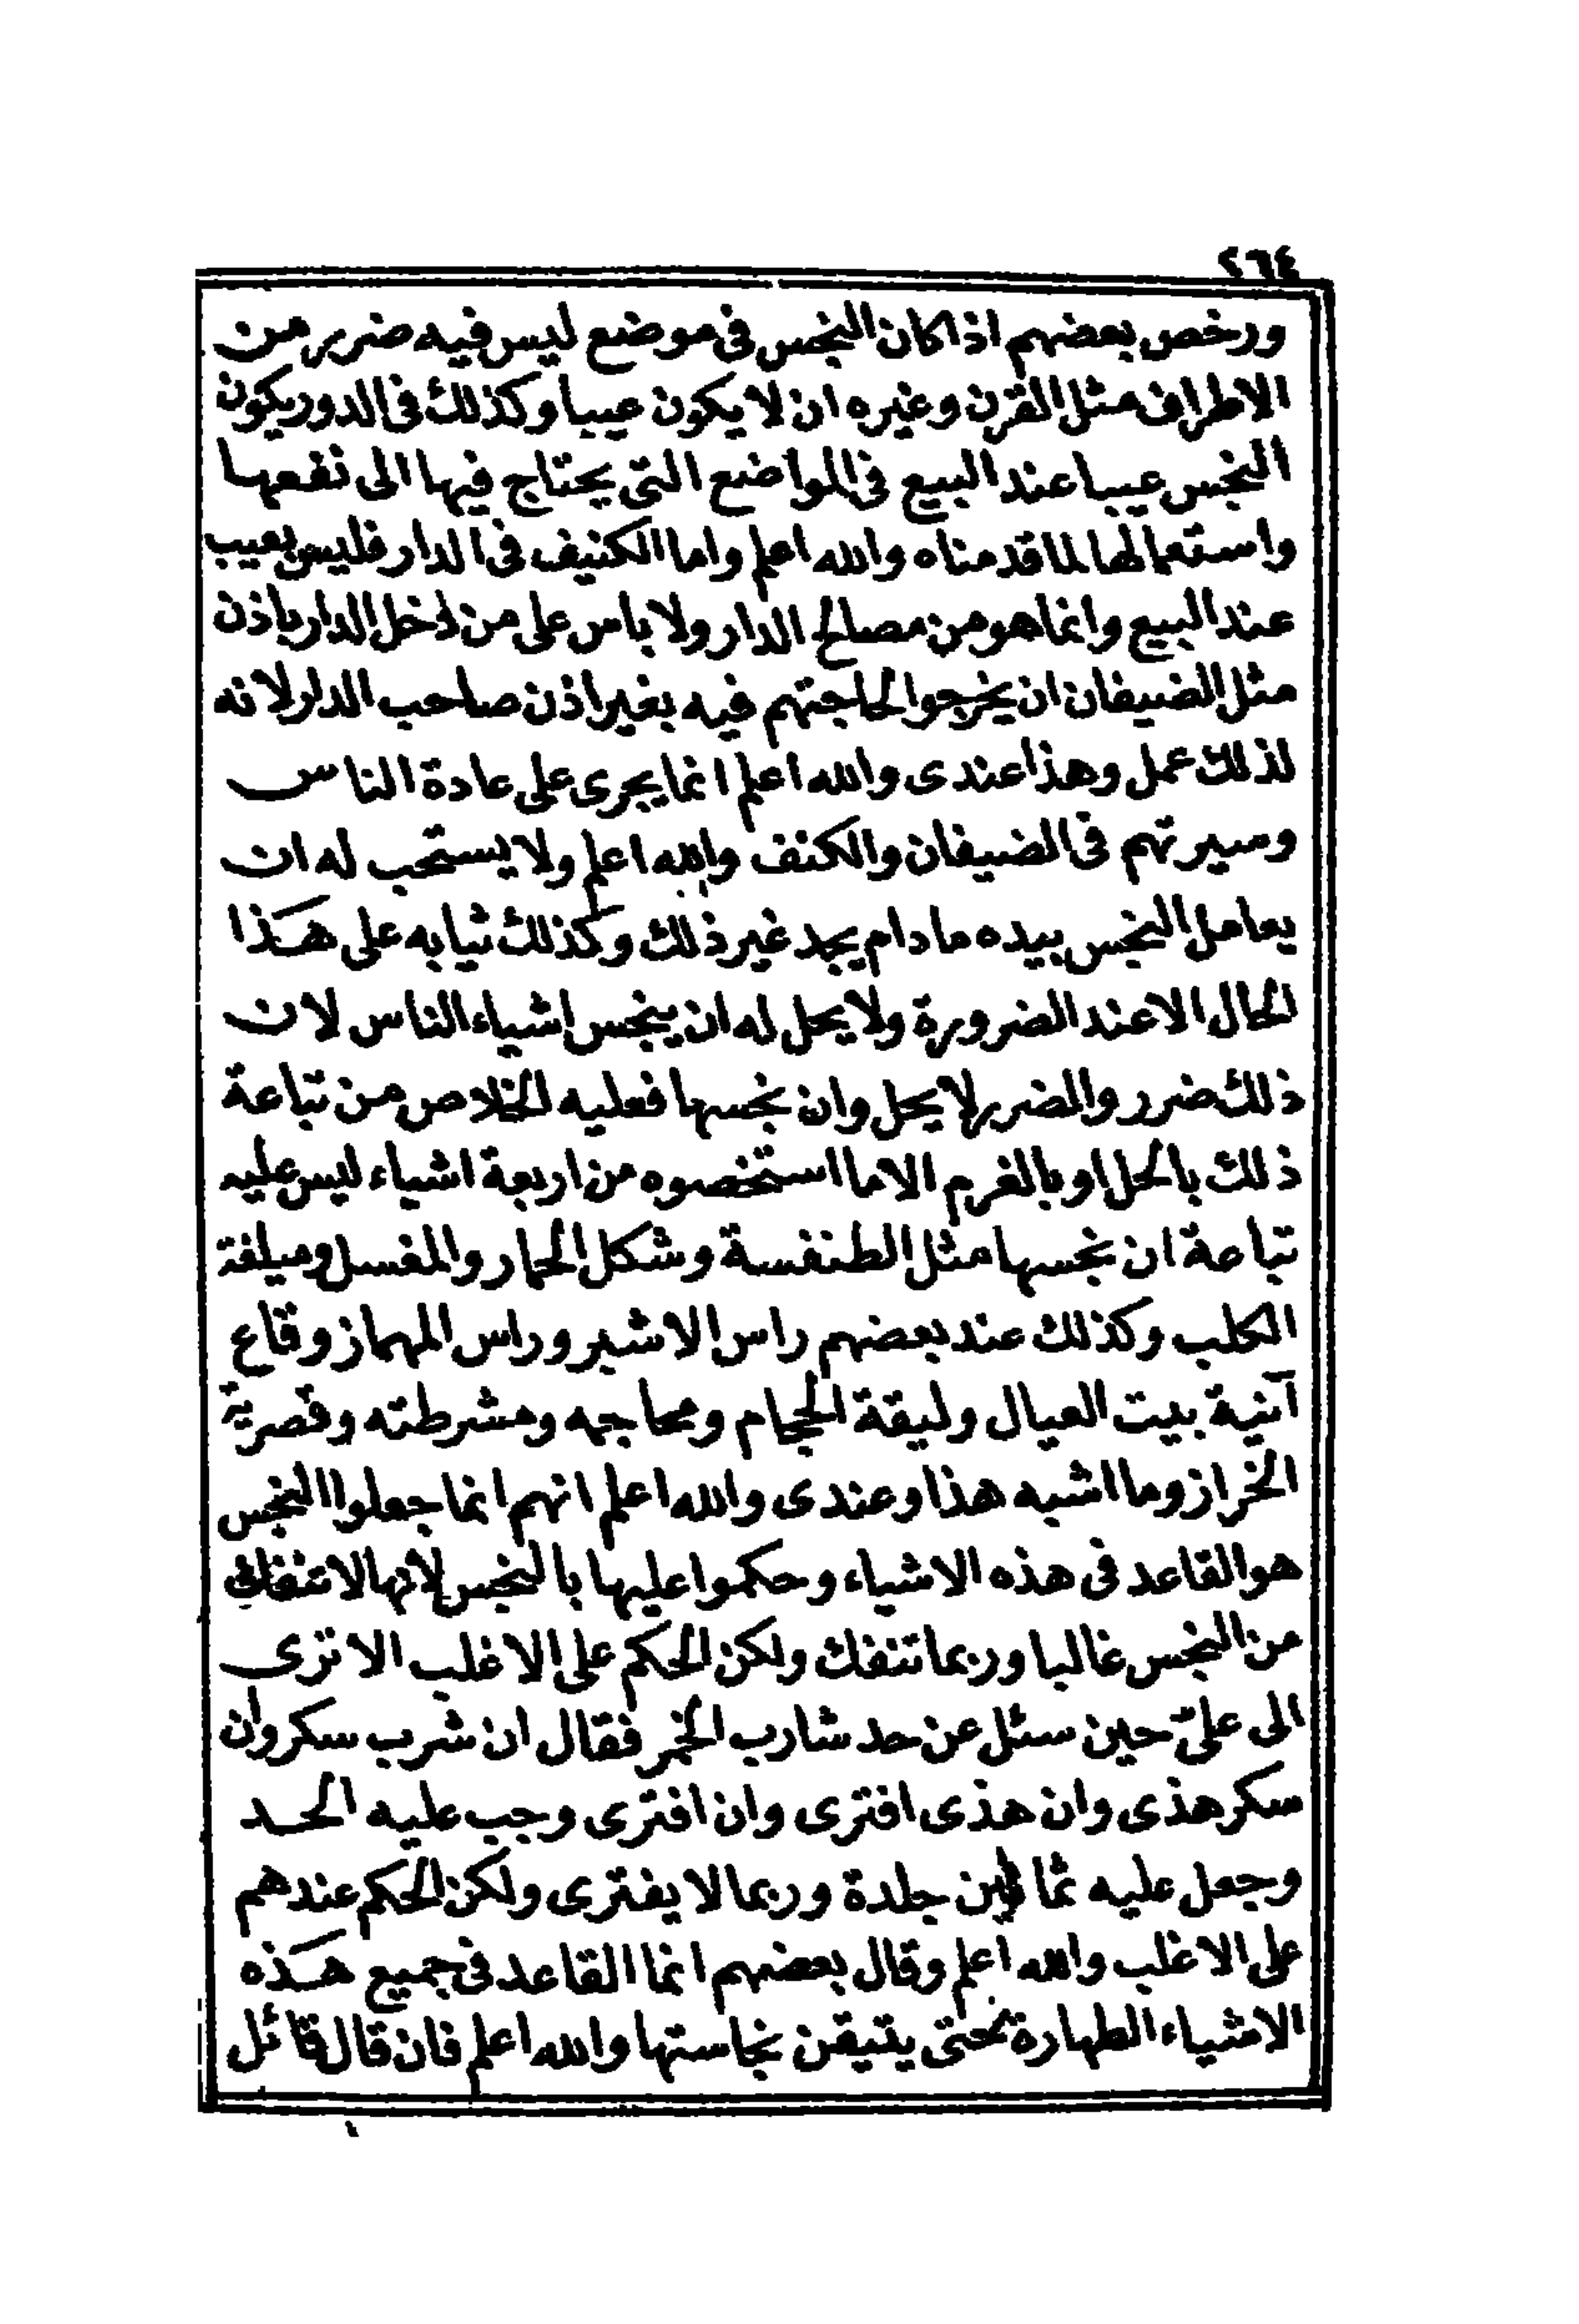 ٢٦٤
ورخص بعضهم اذا كان النجس فى موضع ليس فيه ضرر من
الاطراف مثل القرن وغيره ان لا يكون عيبا وكذلك فى الدور يكون
النجس عيبا عند البيع فى المواضع التى يحتاج فيها الى نفعها
واستعمالها لما قدمناه والله اعلم واما الكنيف فى الدار فليس بعيب
عند البيع وانما هو من مصالح الدار ولا باس على من دخل الدار باذن
مثل الضيفان ان يخرجوا لحاجتهم فيه بغير اذن صاحب الدار لانه
لذلك عمل وهذا عندى والله اعلم انما يجرى على عادة الناس
وسيرتهم فى الضيفان والكنف والله اعلم ولا يستحب له ان
يعامل النجس بيده ما دام يجد غير ذلك وكذلك ثيابه على هذا
الحال الا عند الضرورة ولا يحل له ان ينجس اشياء الناس لان
ذلك ضرر والضرر لا يحل وان نجسها فعليه الخلاص من تباعة
ذلك بالحل او بالغرم الا ما استخصوه من اربعة اشياء ليس عليه
تباعة ان نجسها مثل الطنفسة وشكل الحمار والمغسل وميلغة
الكلب وكذلك عند بعضهم راس الاشبر وراس المهماز وقاع
آنية بيت العيال وليقة الحجام ومحاجه ومشرطته وقصرية
الخراز وما اشبه هذا وعندى والله اعلم انهم انما جعلوا النجس
هو القاعد فى هذه الاشياء وحكموا عليها بالنجس لانها لا تنفك
من النجس غالبا وربما تنفك ولكن الحكم على الاغلب الا ترى
الى علىّ حين سئل عن حد شارب الخمر فقال ان شرب سكر وان
سكر هذى وان هذى افترى وان افترى وجب عليه الحد
وجعل عليه ثمانين جلدة وربما لا يفترى ولكن الحكم عندهم
على الاغلب والله اعلم وقال بعضهم انما القاعد فى جميع هذه
الاشياء الطهارة حتى يتيقن نجاستها والله اعلم فان قال قائل